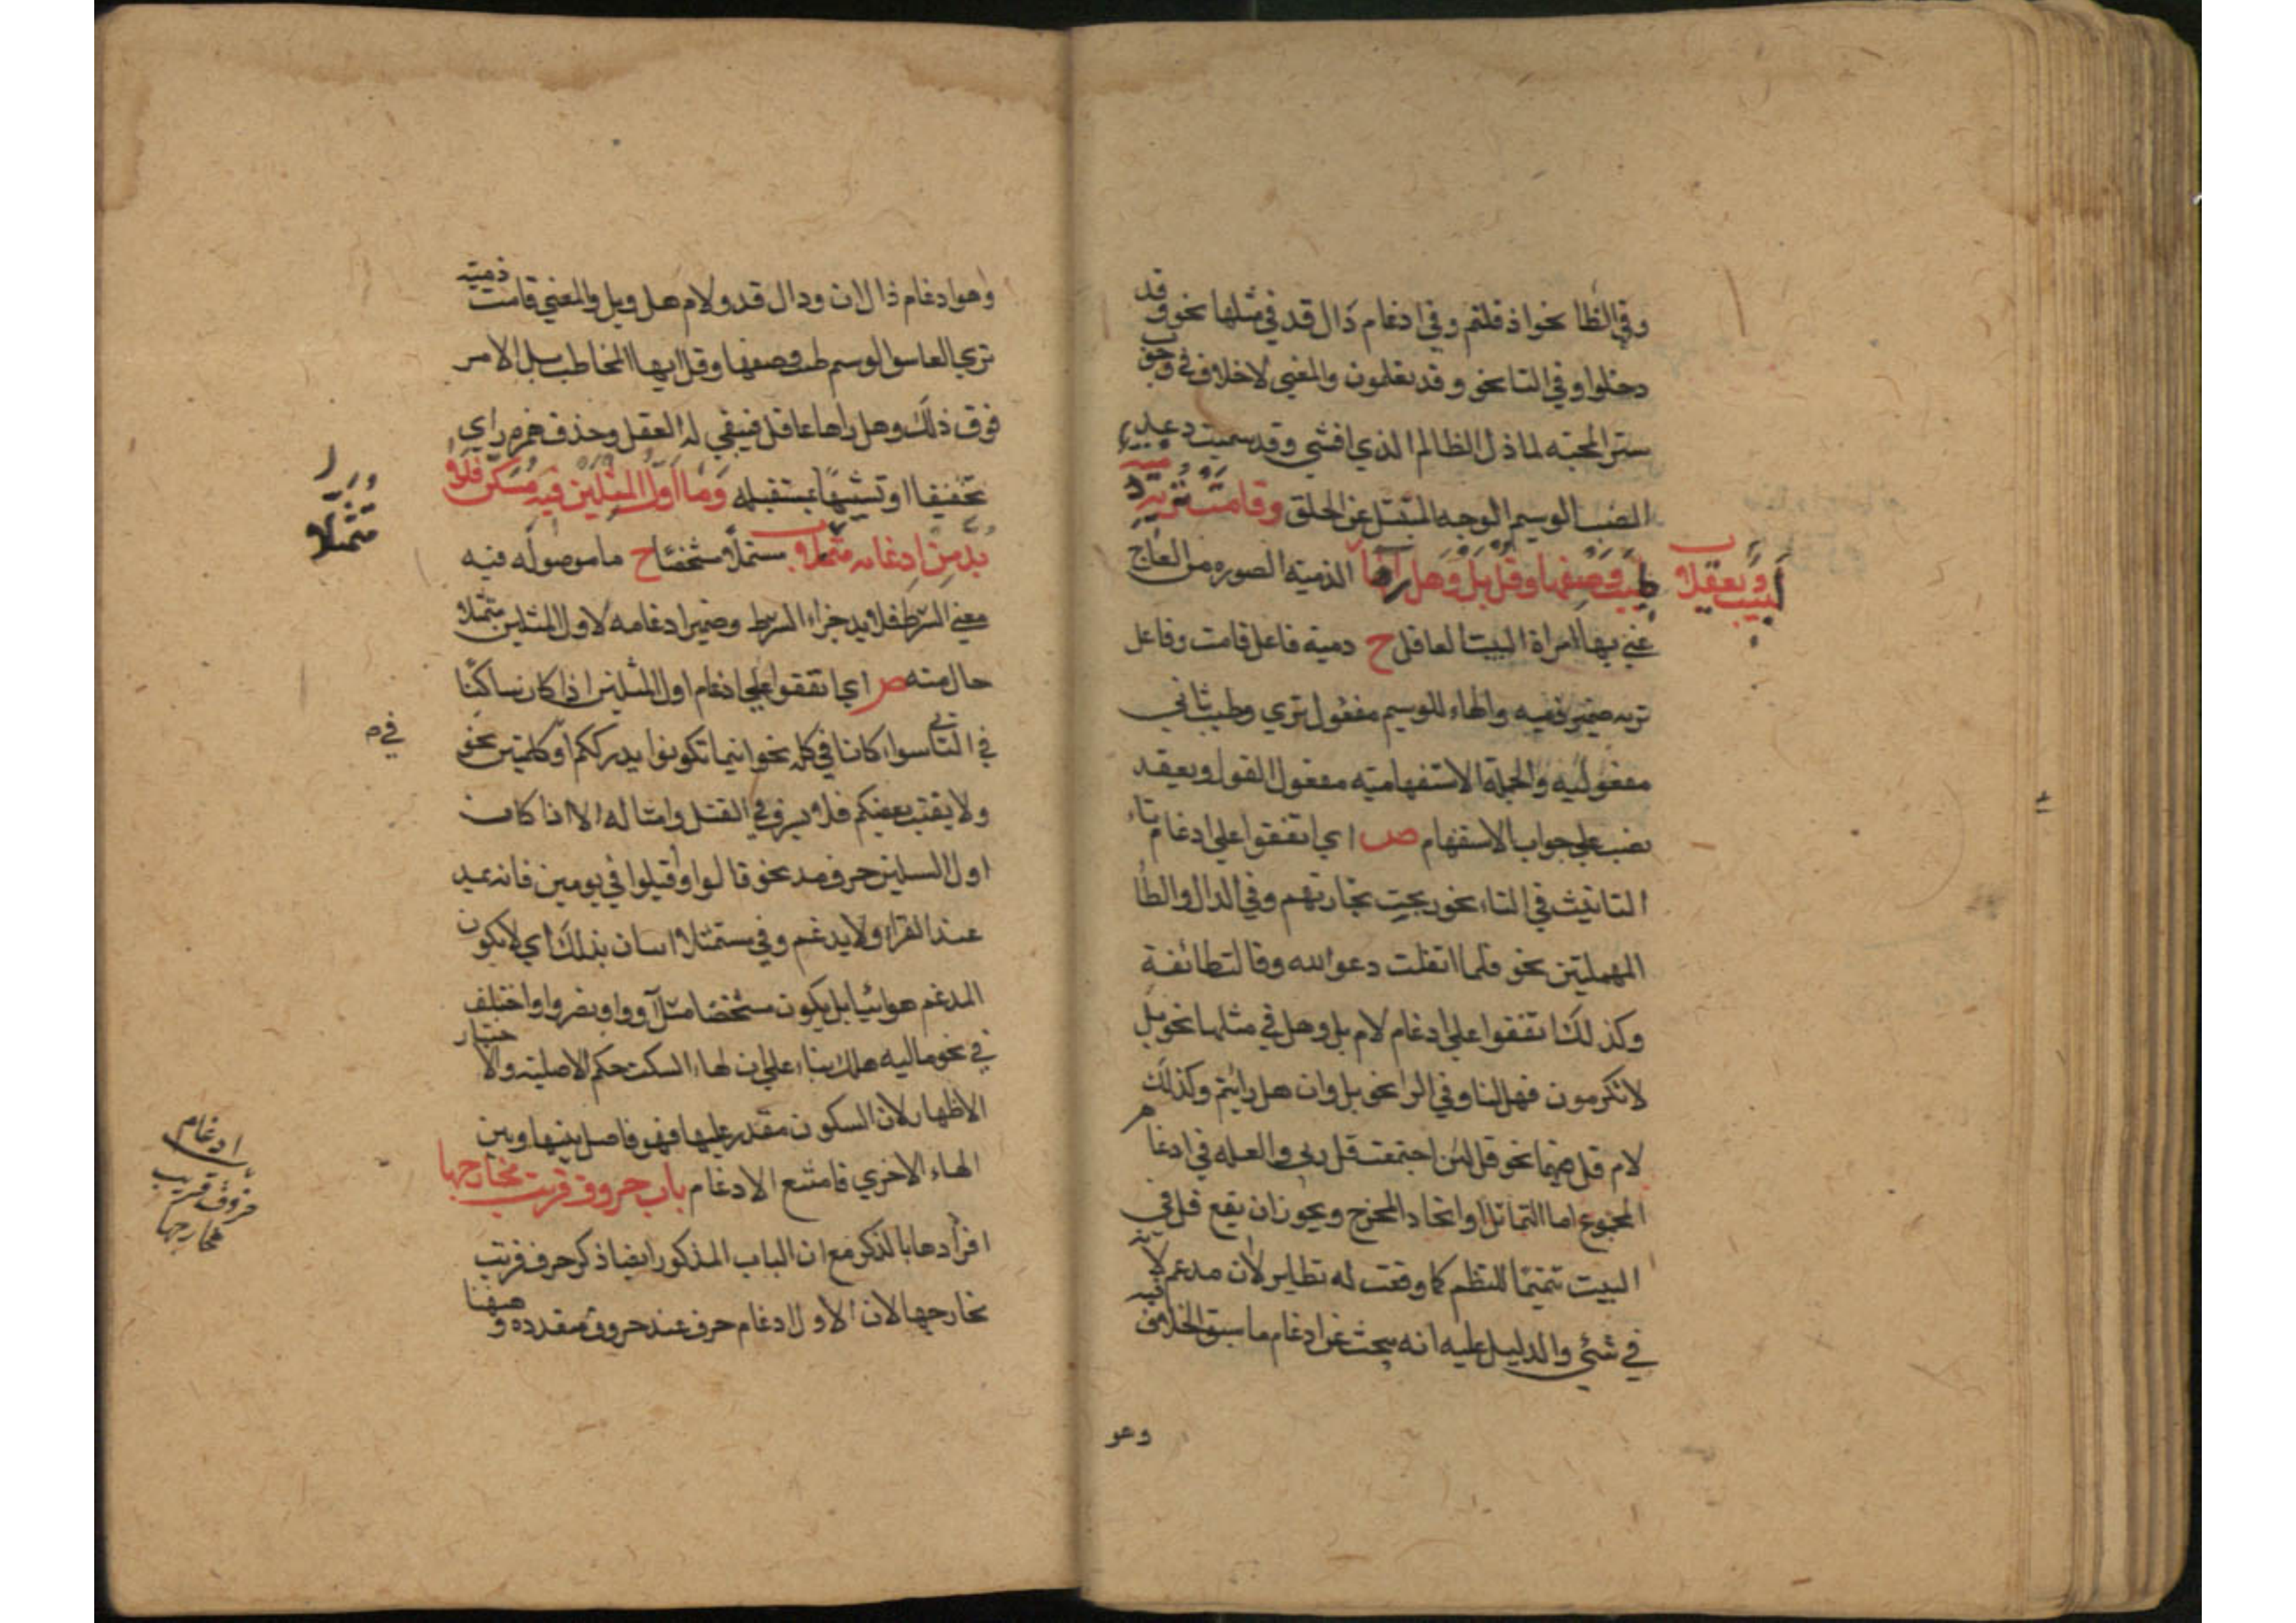 وفي الظا نحو اذ ظلمتم وفي ادغام دال قد في مثلها نحو وقد
دخلوا وفي التا نحو وقد تعلمون والمعنى لا خلاف في وجوب
ستر المحبة لما ذل الظالم الذي افشى وقد سميت دعد
الوسيم الوجه المتبتل عن الخلق وقامت تريه دمية
طيب وصفها وقل بل وهل راها الدمية الصوره من العاج
لبيب ويعقلا
عني بها امراة اللبيب العاقل ح دمية فاعل قامت وفاعل
تريه ضمير دمية والهاء للوسيم مفعول تري وطيب ثاني
مفعوليه والجملة الاستفهامية مفعول القول ويعقد
نصب علي جواب الاستفهام ص اي اتفقوا علي ادغام تاء
التانيث في التاء نحو ربحت تجارتهم وفي الدال والطا
المهملتين نحو فلما اثقلت دعوا الله وقالت طائفة
وكذلك اتفقوا علي ادغام لام بل وهل في مثلها نحو بل
لا تكرمون فهل لنا وفي الرا نحو بل ران هل رايتم وكذلك
لام قل فيهما نحو قل لئن اجتمعت قل ربي والعله في ادغام
المجموع اما التماثل او اتحاد المخرج ويجوز ان يقع قل في
البيت تتميما للنظم كما وقعت له نظاير لان مدغم لانه
في شئي والدليل عليه انه يبحث عن ادغام ما سبق الخلاف فيه
وهو
وهو ادغام ذال اذ ودال قد ولام هل وبل والمعني قامت دمية
تري العاشق الوسيم طيب وصفها وقل ايها المخاطب بل الامر
فوق ذلك وهل راها عاقل فيبقي له العقل وحذف همزه راي
تخفيفا او تشبيها بمستقبله وما اول المثلين فيه مسكن فلا
بد من ادغامه متمثلا متمثلا متشخصا ح ما موصوله فيه
متمثلا
معني الشرط فلا بد جزاء الشرط وضمير ادغامه لاول المثلين متمثلا
حال منه ص اي اتفقوا علي ادغام اول المثلين اذا كان ساكنا
في الثاني سواء كانا في كلمه نحو اينما تكونوا يدرككم او كلمتين نحو
في
ولا يغتب بعضكم فلا يسرف في القتل وامثاله الا اذا كان
اول المثلين حرف مد نحو قالوا واقبلوا في يومين فانه يمد
عند القراء ولا يدغم وفي متمثلا اشارة بذلك اي لا يكون
المدغم هوائيا بل يكون متشخصا مثل اووا ونصروا واختلف
في نحو ماليه هلك بناء علي ان لهاء السكت حكم الاصلية والاختيار
الاظهار لان السكون مقدر عليها فهو فاصل بينها وبين
الهاء الاخري فامتنع الادغام باب حروف قربت مخارجها
ادغام
حروف قريب
مخارجها
افرادها بالذكر مع ان الباب المذكور ايضا ذكر حرف قربت
مخارجها لان الاول ادغام حرف عند حروف متعدده وههنا